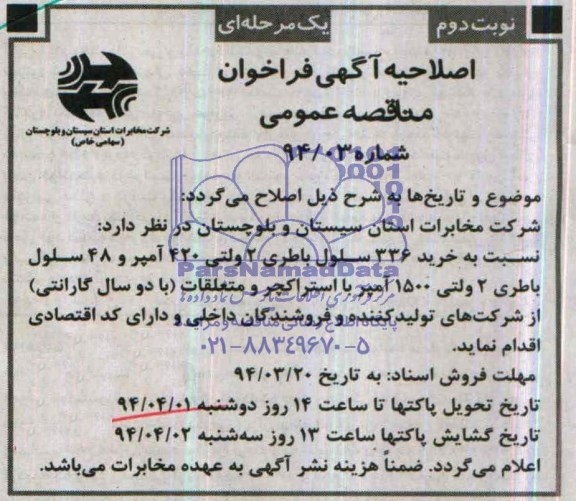 نوبت دوم
یک مرحله‌ای
اصلاحیه آگهی فراخوان
مناقصه عمومی
شماره ۹۴/۰۳
شرکت مخابرات استان سیستان و بلوچستان
(سهامی خاص)
موضوع و تاریخ‌ها به شرح ذیل اصلاح می‌گردد:
شرکت مخابرات استان سیستان و بلوچستان در نظر دارد:
نسبت به خرید ۳۳۶ سلول باطری ۲ ولتی ۴۲۰ آمپر و ۴۸ سلول
ParsNamadData
باطری ۲ ولتی ۱۵۰۰ آمپر با استراکچر و متعلقات (با دو سال گارانتی)
از شرکت‌های تولیدکننده و فروشندگان داخلی و دارای کد اقتصادی
پایگاه اطلاع رسانی مناقصه و مزایده
اقدام نماید.
۰۲۱-۸۸۳۴۹۶۷۰-۵
مهلت فروش اسناد: به تاریخ ۹۴/۰۳/۲۰
تاریخ تحویل پاکتها تا ساعت ۱۴ روز دوشنبه ۹۴/۰۴/۰۱
تاریخ گشایش پاکتها ساعت ۱۳ روز سه‌شنبه ۹۴/۰۴/۰۲
اعلام می‌گردد. ضمناً هزینه نشر آگهی به عهده مخابرات می‌باشد.